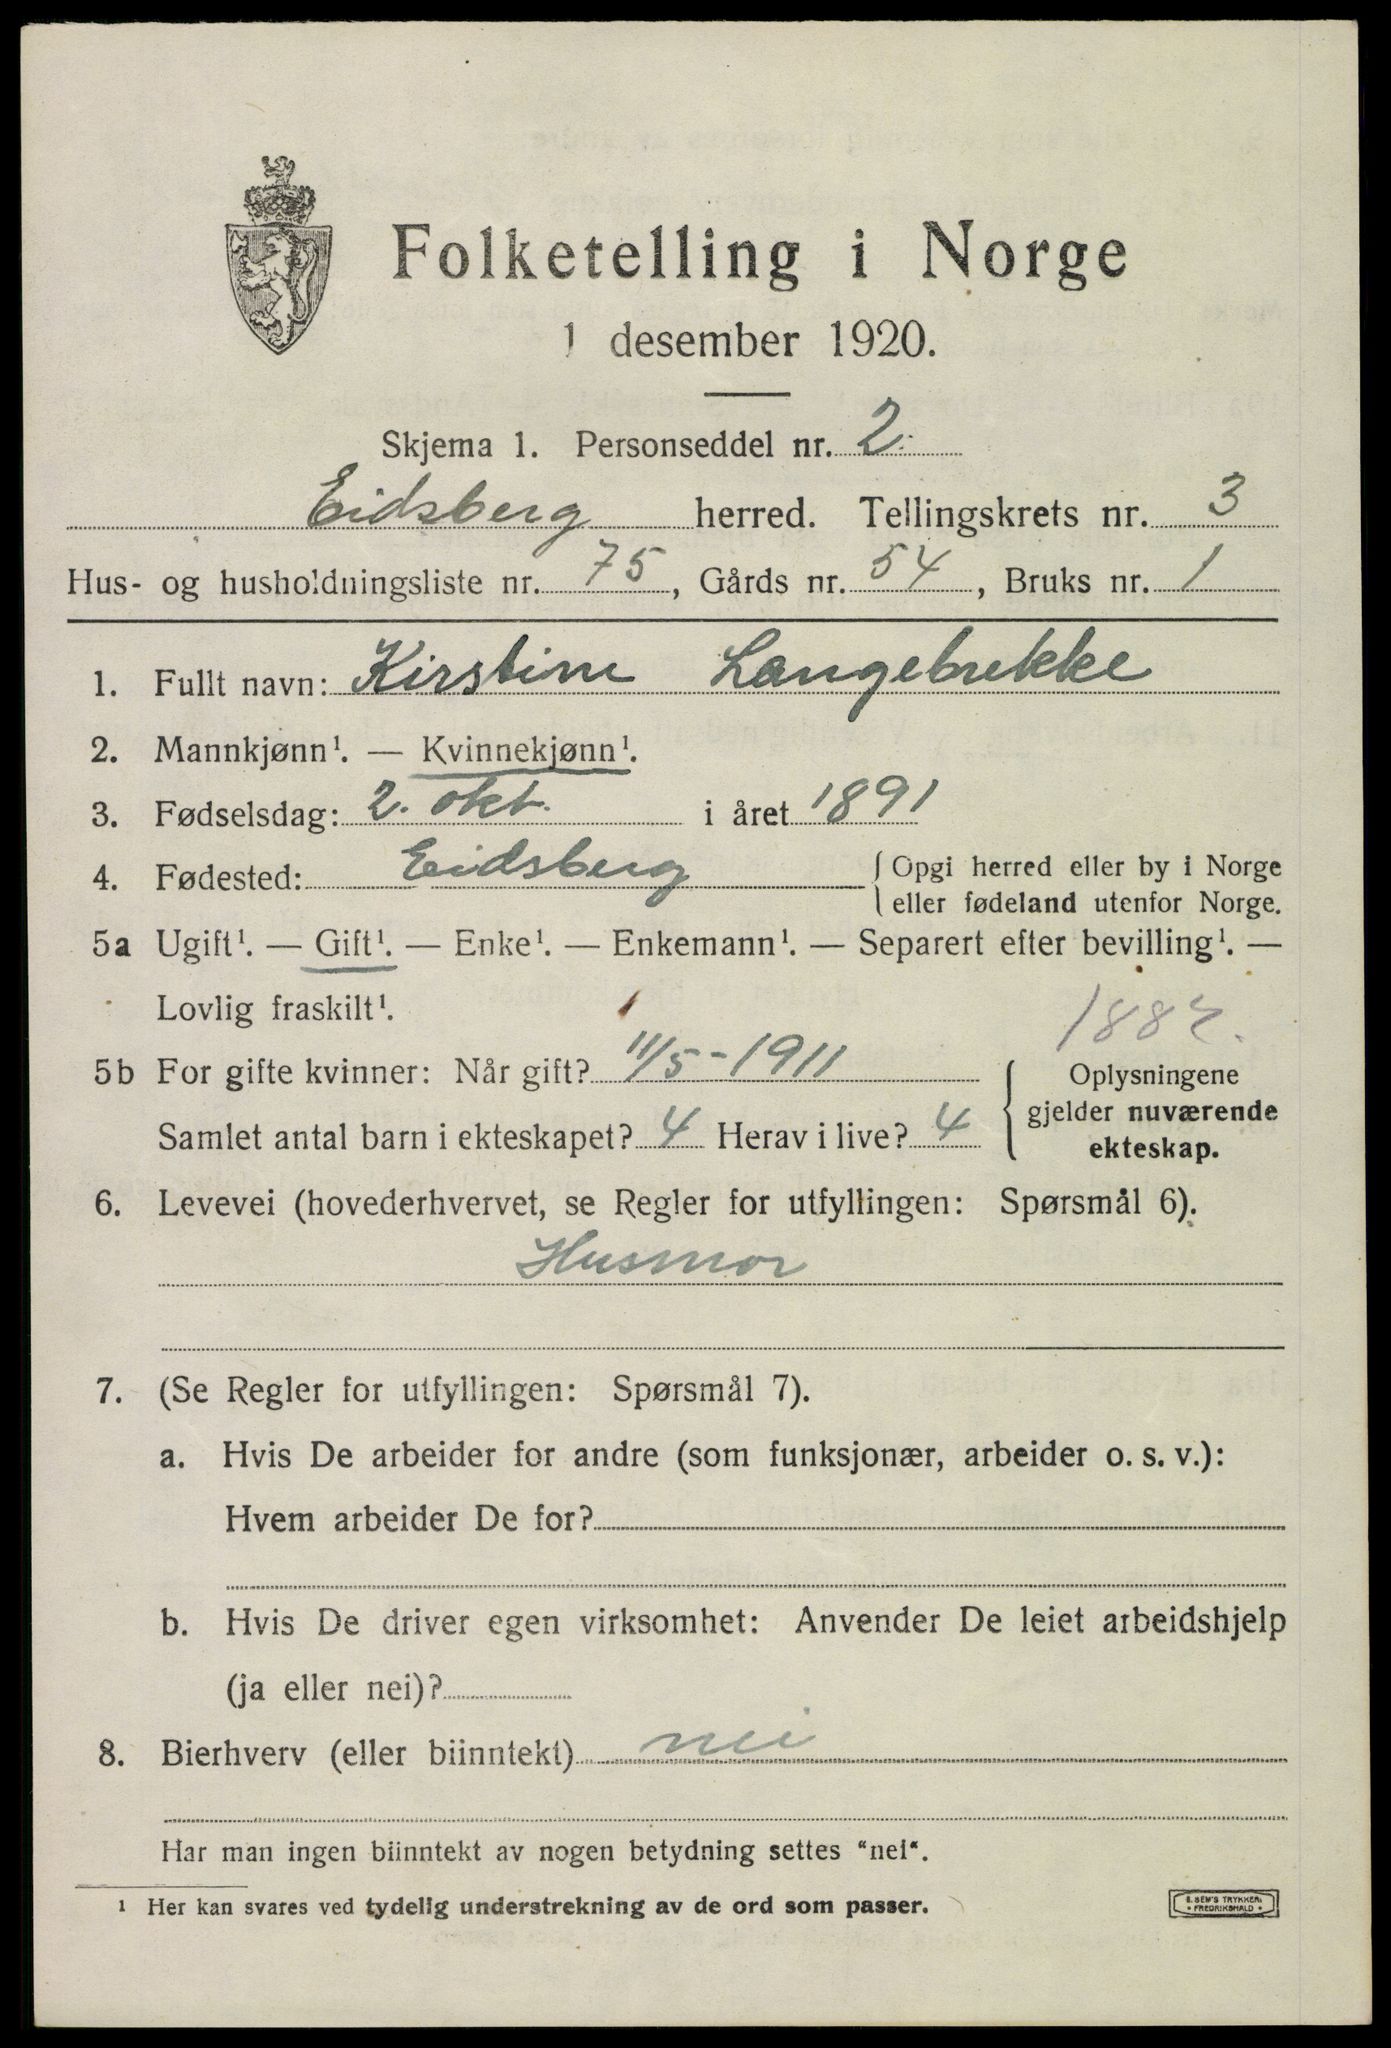 Folketelling i Norge
1 desember 1920.
Skjema 1. Personseddel nr. 2.
Eidsberg herred. Tellingskrets nr. 3
Hus- og husholdningsliste nr. 75, Gårds nr. 54, Bruks nr. 1
1. Fullt navn: Kirstine Langebrekke
2. Mannkjønn¹. — Kvinnekjønn¹.
3. Fødselsdag: 2. okt. i året 1891
4. Fødested: Eidsberg { Opgi herred eller by i Norge
eller fødeland utenfor Norge.
5a Ugift¹. — Gift¹. — Enke¹. — Enkemann¹. — Separert efter bevilling¹. —
Lovlig fraskilt¹.
5b For gifte kvinner: Når gift? 11/5-1911
Samlet antal barn i ekteskapet? 4 Herav i live? 4
Oplysningene
gjelder nuværende
ekteskap.
6. Levevei (hovederhvervet, se Regler for utfyllingen: Spørsmål 6).
Husmor
7. (Se Regler for utfyllingen: Spørsmål 7).
a. Hvis De arbeider for andre (som funksjonær, arbeider o. s. v.):
Hvem arbeider De for?
b. Hvis De driver egen virksomhet: Anvender De leiet arbeidshjelp
(ja eller nei)?
8. Bierhverv (eller biinntekt) nei
Har man ingen biinntekt av nogen betydning settes "nei".
¹ Her kan svares ved tydelig understrekning av de ord som passer.
E. SEM'S TRYKKERI
FREDRIKSHALD